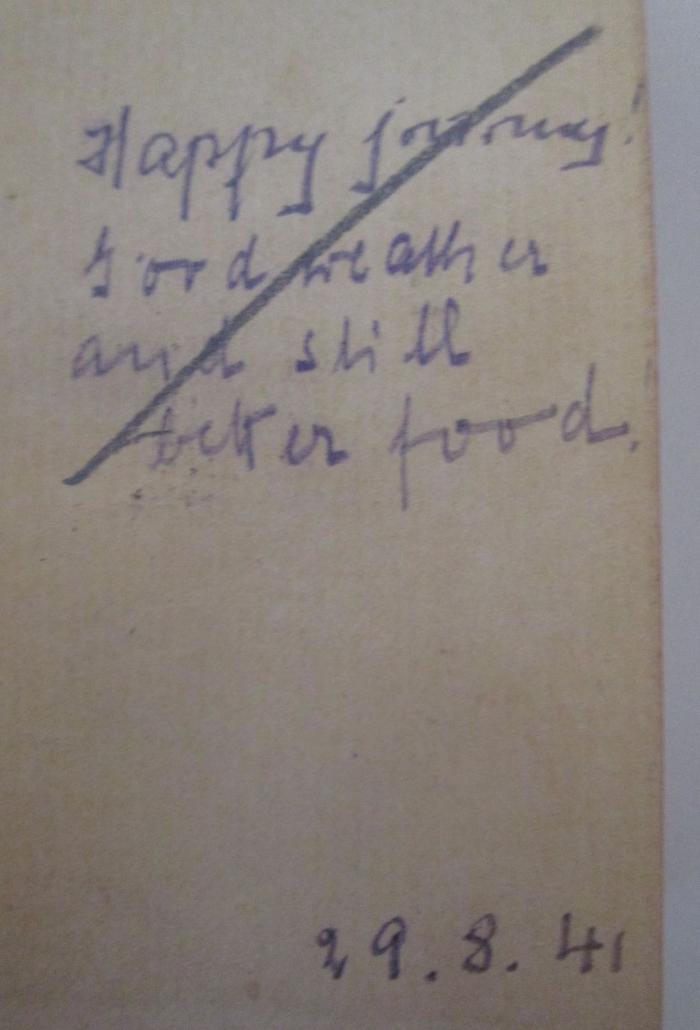 Happy journey!
Good weather
and still
better food.
29.8.41